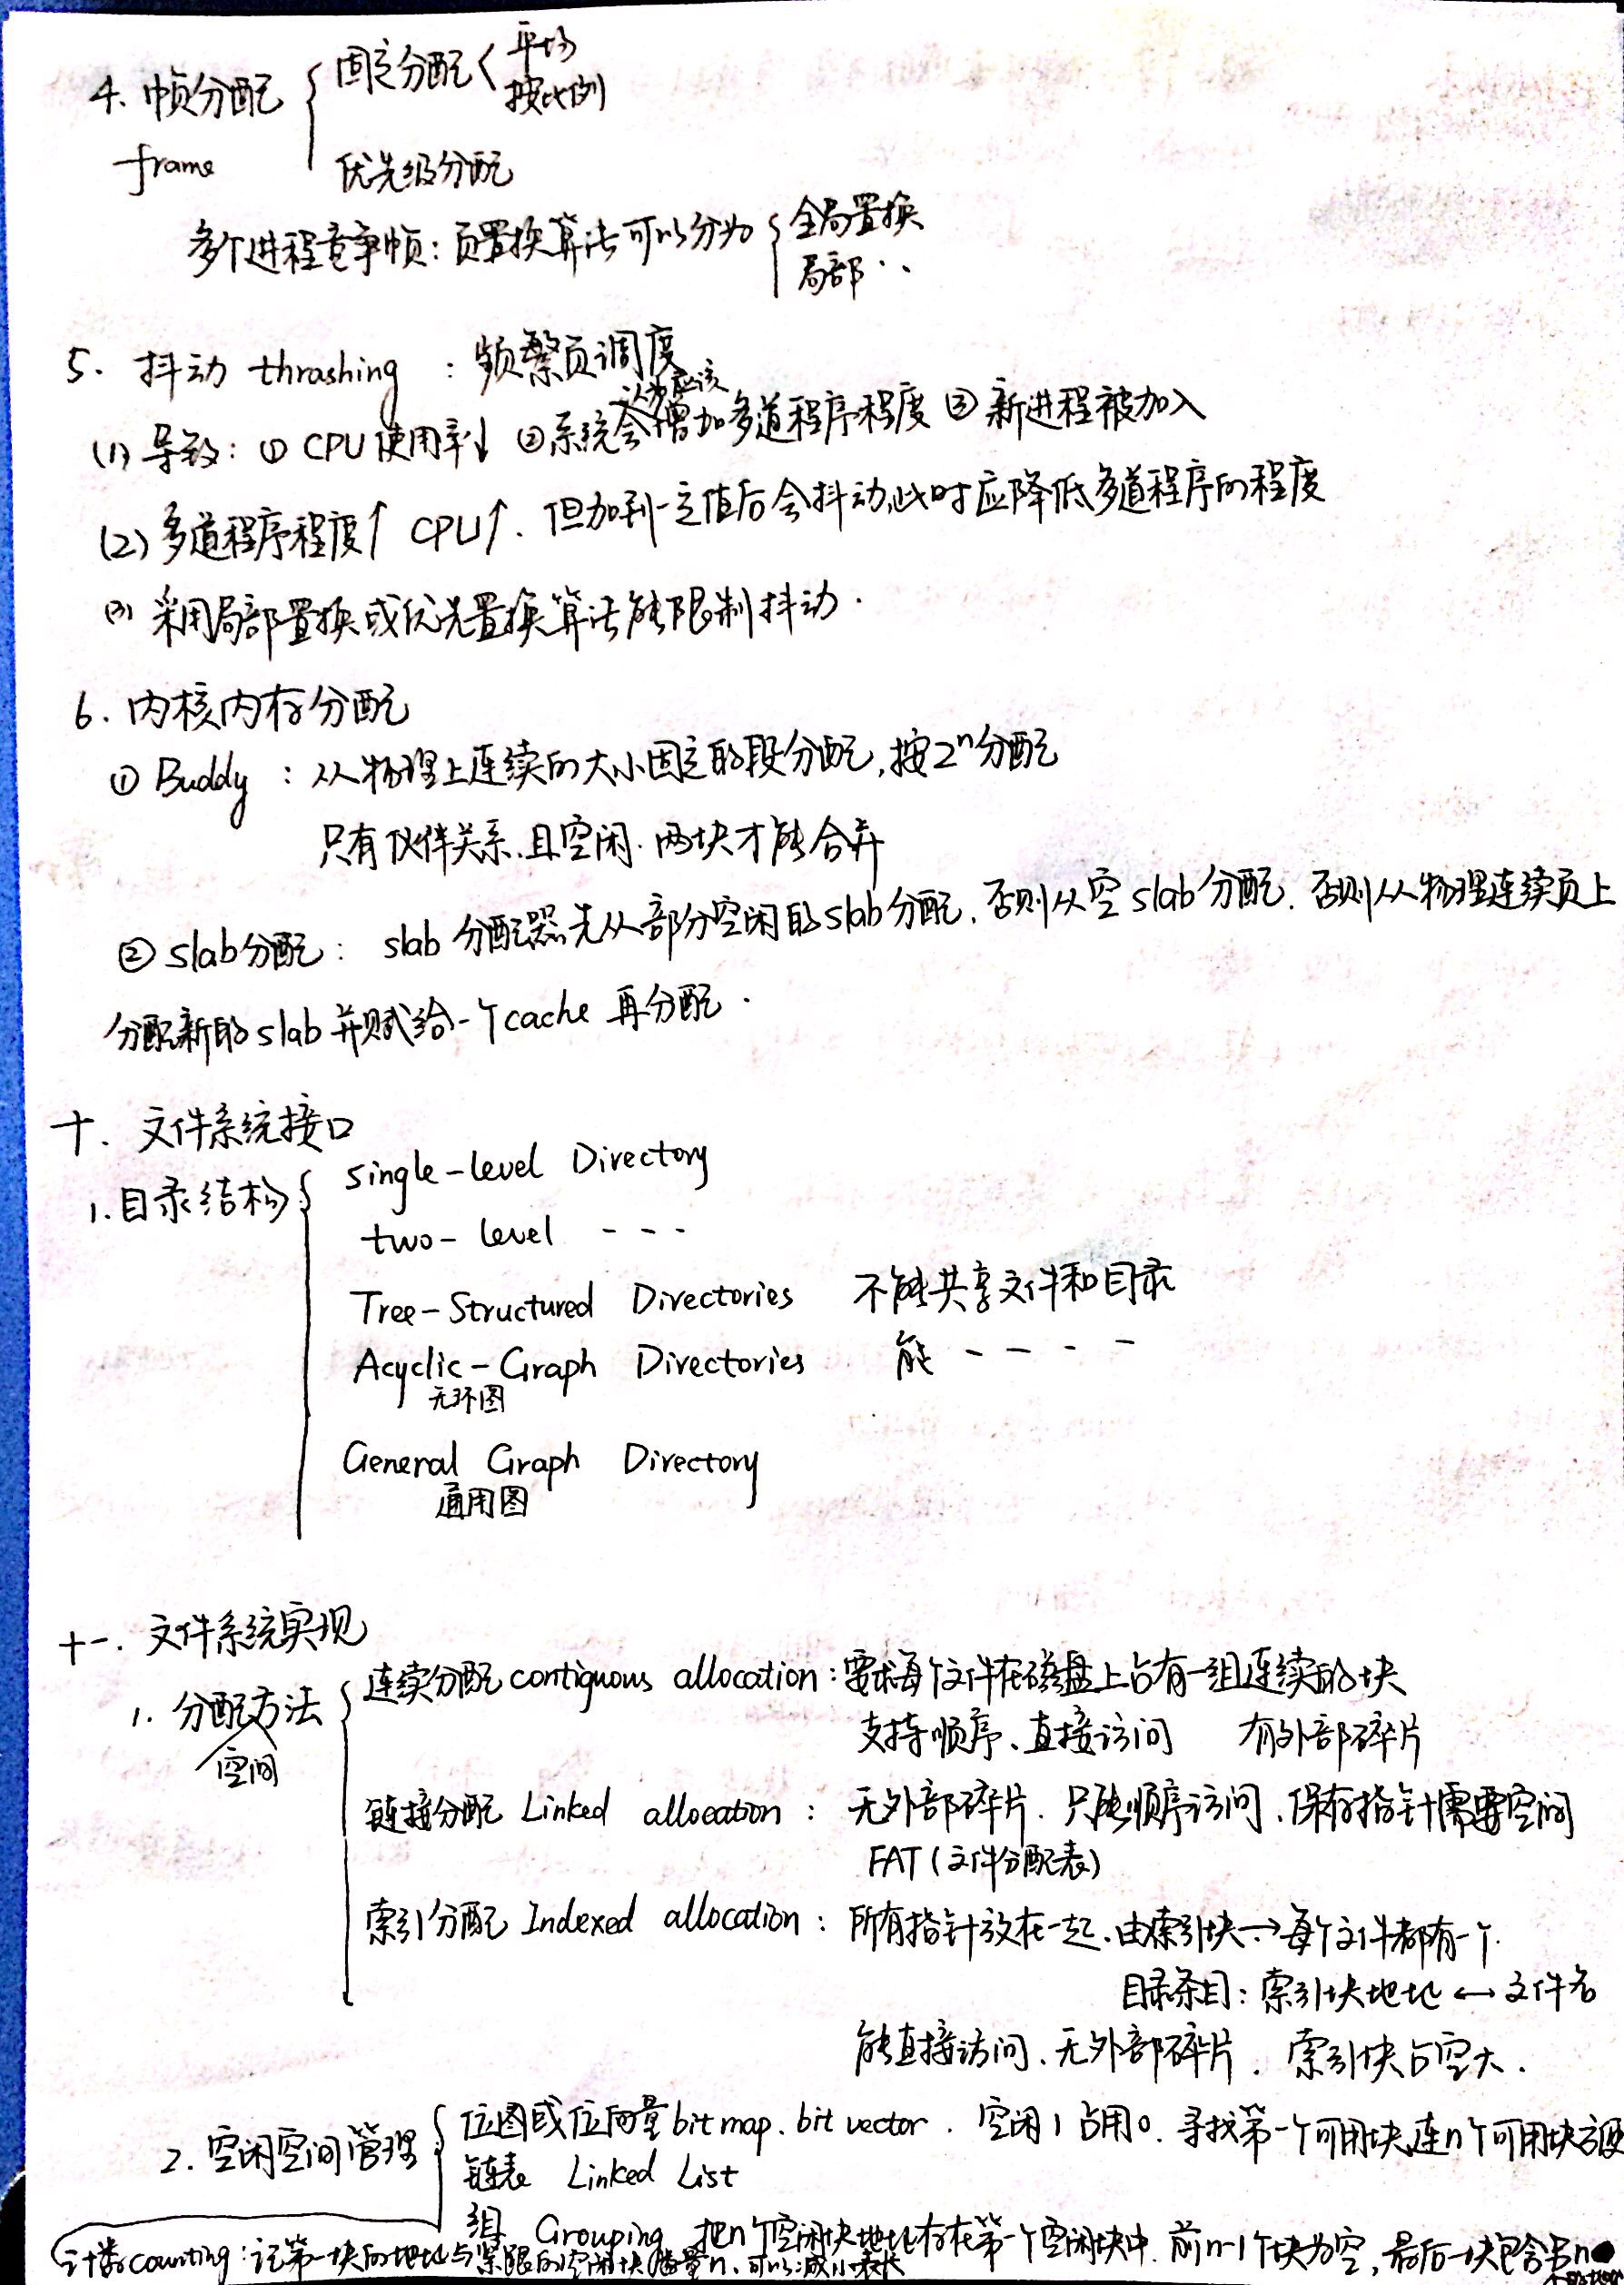 4. 帧分配 { 固定分配 < 平均
按比例
frame 优先级分配
多个进程竞争帧: 页置换算法可以分为 { 全局置换
局部 ··
5. 抖动 thrashing : 频繁页调度
认为应该
(1) 导致: ① CPU使用率↓ ②系统会增加多道程序程度 ③ 新进程被加入
(2) 多道程序程度↑ CPU↑. 但加到一定值后会抖动,此时应降低多道程序的程度
(3) 采用局部置换或优先置换算法能限制抖动.
6. 内核内存分配
① Buddy : 从物理上连续的大小固定的段分配,按2ⁿ分配
只有伙伴关系、且空闲. 两块才能合并
② slab分配: slab 分配器先从部分空闲的slab分配, 否则从空slab分配. 否则从物理连续页上
分配新的slab并赋给一个cache 再分配.
十、文件系统接口
1.目录结构 { Single-level Directory
two-level - - -
Tree-Structured Directories 不能共享文件和目录
Acyclic-Graph Directories 能 - - - -
无环图
General Graph Directory
通用图
十一. 文件系统实现
1. 分配方法 { 连续分配 contiguous allocation : 要求每个文件在磁盘上占有一组连续的块
空间
支持顺序、直接访问 有外部碎片
链接分配 Linked allocation : 无外部碎片. 只能顺序访问、保存指针需要空间
FAT (文件分配表)
索引分配 Indexed allocation : 所有指针放在一起、由索引块→每个文件都有一个.
目录条目: 索引块地址 ↔ 文件名
能直接访问、无外部碎片. 索引块占空大.
2. 空闲空间管理 { 位图或位向量 bit map、bit vector. 空闲1 占用0. 寻找第一个可用块,连n个可用块方便
链表 Linked List
组 Grouping 把n个空闲块地址存在第一个空闲块中. 前n-1个块为空, 最后一块包含另n
计数counting: 记第一块的地址与紧跟的空闲块数量n、可以减小表长